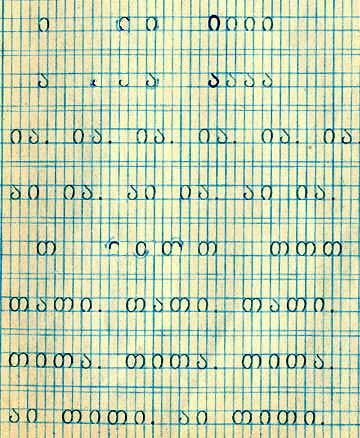 ი ი იიიი
ა ა აააა
ია. ია. ია. ია. ია. ია.
აი ია. აი ია. აი ია.
თ თ თთთ
თათი. თათი. თათი.
თითა. თითა. თითა.
აი თითი. აი თითი.